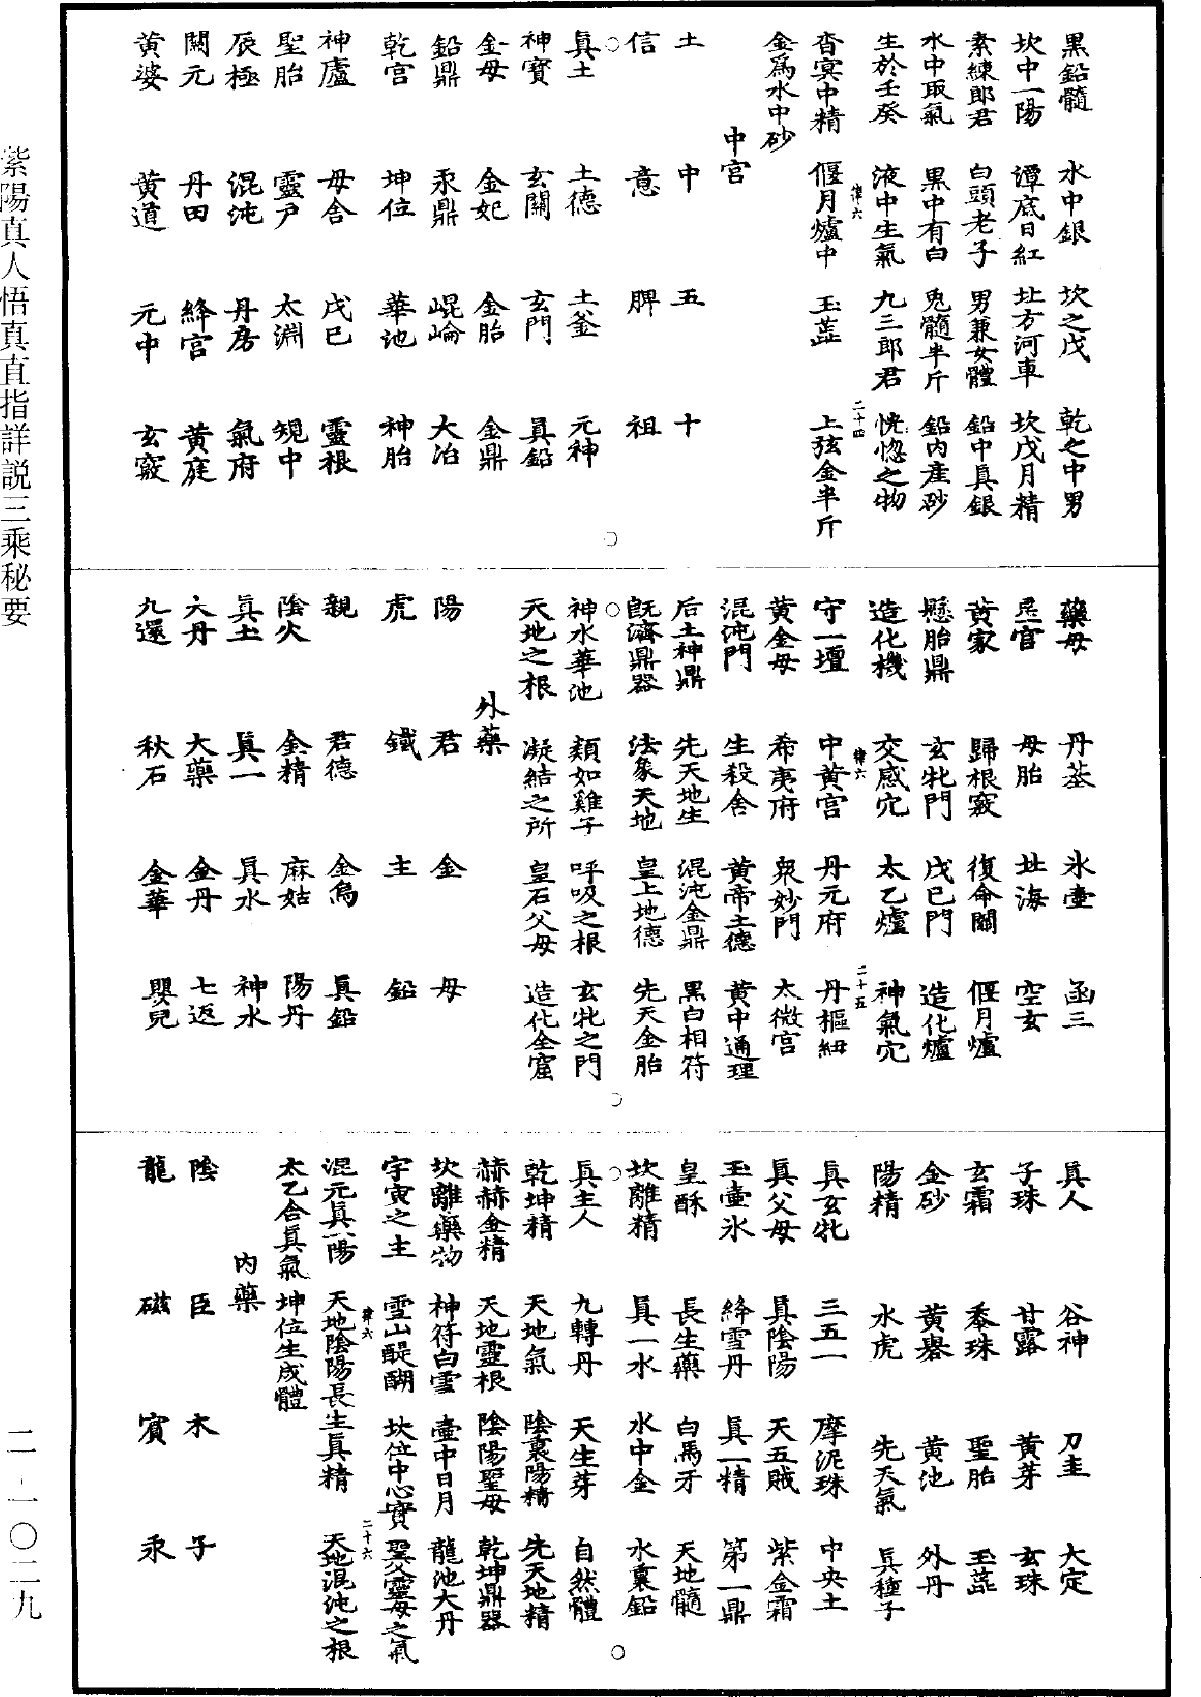 黑鉛髓　水中銀　坎之戊　乾之中男
坎中一陽　潭底日紅　北方河車　坎戊月精
素練郎君　白頭老子　男兼女體　鉛中真銀
水中取氣　黑中有白　兔髓半斤　鉛內產砂
生於壬癸　液中生氣　九三郎君　恍惚之物
律六　二十四
杳冥中精　偃月爐中　玉蕋　上弦金半斤
金爲水中砂
中宮
土　中　五　十
信　意　脾　祖
真土　土德　土釜　元神
神寶　玄關　玄門　真鉛
金母　金妃　金胎　金鼎
鉛鼎　汞鼎　崐崘　大冶
乾宮　坤位　華池　神胎
神廬　母舍　戊己　靈根
聖胎　靈戶　太淵　規中
辰極　混沌　丹房　氣府
關元　丹田　絳宮　黃庭
黃婆　黃道　元中　玄竅
藥母　丹荃　氷壺　函三
星官　母胎　北海　空玄
黃家　歸根竅　復命關　偃月爐
懸胎鼎　玄牝門　戊己門　造化爐
造化機　交感穴　太乙爐　神氣穴
律六　二十五
守一壇　中黃宮　丹元府　丹樞紐
黃金母　希夷府　衆妙門　太微宮
混沌門　生殺舍　黃帝土德　黃中通理
后土神鼎　先天地生　混沌金鼎　黑白相符
旣濟鼎器　法象天地　皇上地德　先天金胎
神水華池　類如雞子　呼吸之根　玄牝之門
天地之根　凝結之所　皇石父母　造化全窟
外藥
陽　君　金　母
虎　鐵　主　鉛
親　君德　金烏　真鉛
陰火　金精　麻姑　陽丹
真土　真一　真水　神水
大丹　大藥　金丹　七返
九還　秋石　金華　嬰兒
真人　谷神　刀圭　大定
子珠　甘露　黃芽　玄珠
玄霜　黍珠　聖胎　玉蕋
金砂　黃轝　黃池　外丹
陽精　水虎　先天氣　真種子
真玄牝　三五一　摩泥珠　中央土
真父母　真陰陽　天五賊　紫金霜
玉壺氷　絳雪丹　真一精　第一鼎
皇酥　長生藥　白馬牙　天地髓
坎離精　真一水　水中金　水裏鉛
真主人　九轉丹　天生芽　自然體
乾坤精　天地氣　陰裏陽精　先天地精
赫赫金精　天地靈根　陰陽聖母　乾坤鼎器
坎離藥物　神符白雪　壺中日月　龍池大丹
宇寅之主　雪山醍醐　坎位中心實　聖父靈母之氣
律六　二十六
混元真一陽　天地陰陽長生真精　天地混沌之根
太乙含真氣　坤位生成體
內藥
陰　臣　木　子
龍　磁　賓　汞
紫陽真人悟真直指詳説三乘秘要
二-一〇二九